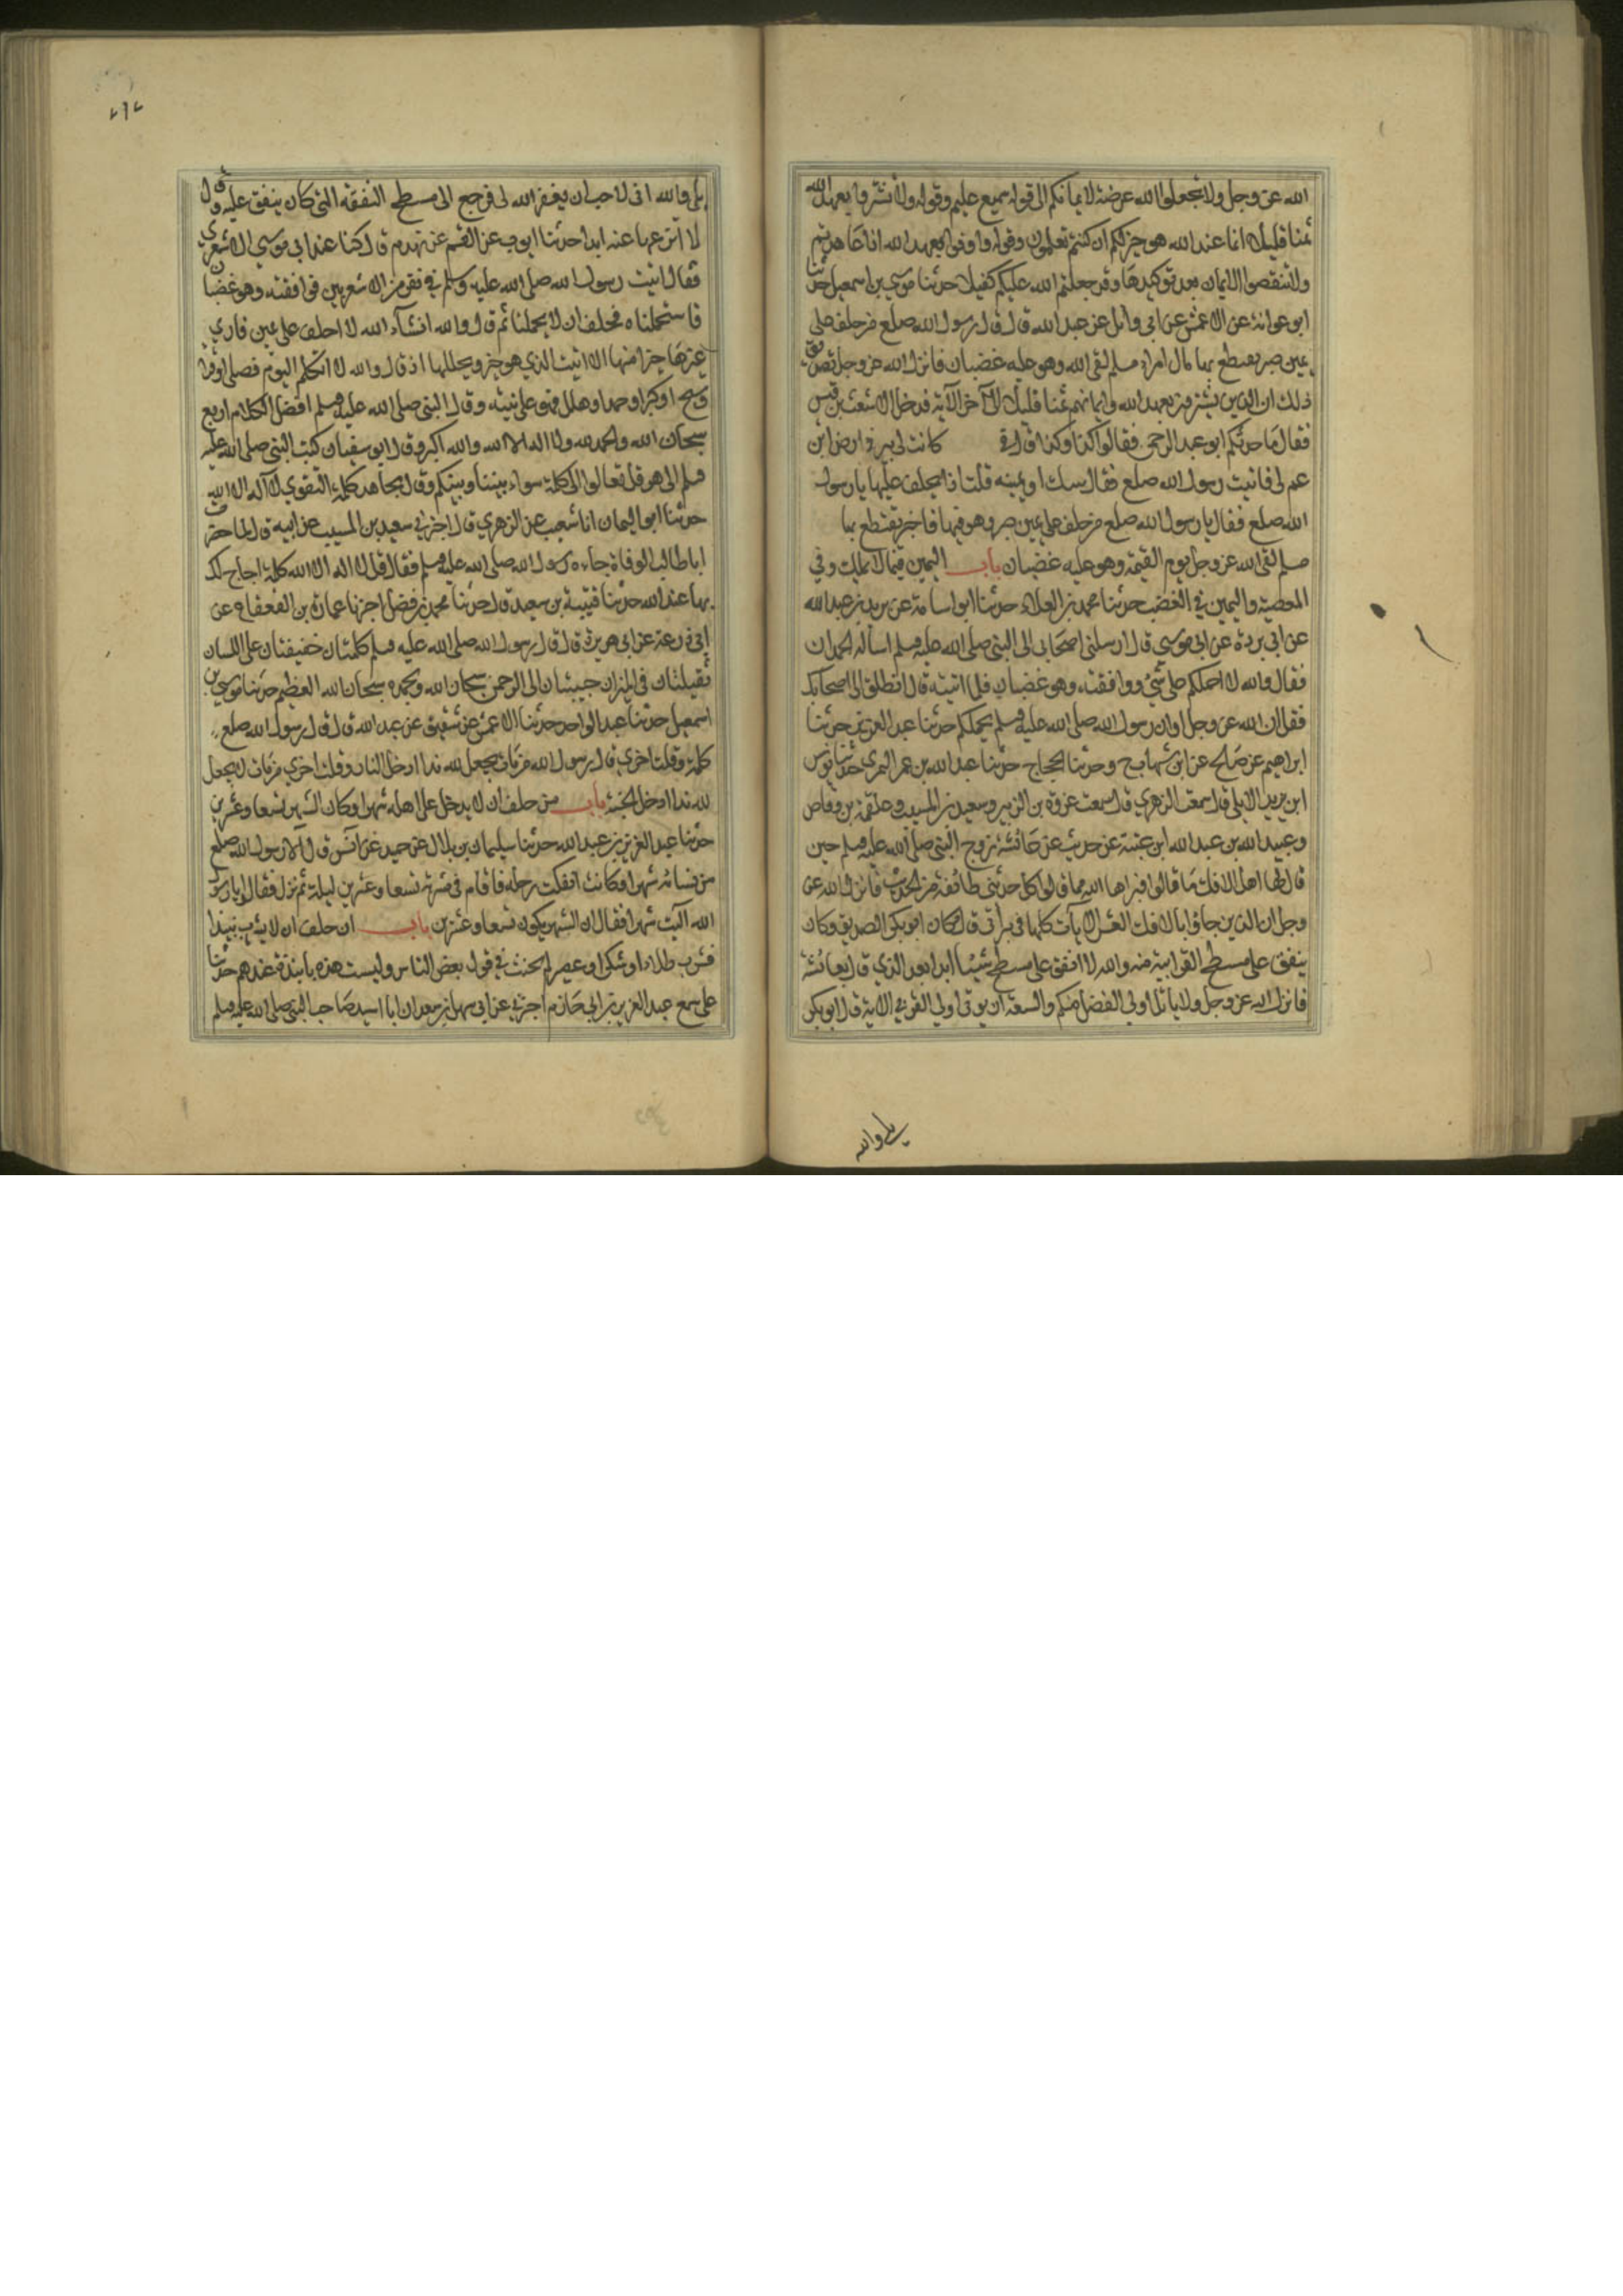 الله عز وجل ولا تجعلوا الله عرضة لايمانكم الى قوله سميع عليم وقوله ولا تشتروا بعهد الله
ثمنا قليلا انما عند الله هو خير لكم ان كنتم تعلمون وقوله واوفوا بعهد الله اذا عاهدتم
ولا تنقضوا الايمان بعد توكيدها وقد جعلتم الله عليكم كفيلا حدثنا موسى بن اسمعيل حدثنا
ابو عوانة عن الاعمش عن ابي وائل عن عبد الله قال قال رسول الله صلعم من حلف على
يمين صبر يقتطع بها مال امرئ مسلم لقى الله وهو عليه غضبان فانزل الله عز وجل تصديق
ذلك ان الذين يشترون بعهد الله وايمانهم ثمنا قليلا الى آخر الآية فدخل الاشعث بن قيس
فقال ما حدثكم ابو عبد الرحمن فقالوا كذا وكذا قال في كانت لي بئر في ارض ابن
عم لي فاتيت رسول الله صلعم فقال بينتك او يمينه قلت اذا يحلف عليها يا رسول
الله صلعم فقال يا رسول الله صلعم من حلف على يمين صبر وهو فيها فاجر يقتطع بها
مسلم لقى الله عز وجل يوم القيمة وهو عليه غضبان باب اليمين فيما لا يملك وفي
المعصية واليمين في الغضب حدثنا محمد بن العلاء حدثنا ابو اسامة عن بريد بن عبد الله
عن ابي بردة عن ابي موسى قال ارسلني اصحابي الى النبي صلى الله عليه وسلم اساله الحملان
فقال والله لا احملكم على شئ ووافقته وهو غضبان فلما اتيته قال انطلق الى اصحابك
فقل ان الله عز وجل او ان رسول الله صلى الله عليه وسلم يحملكم حدثنا عبد العزيز حدثنا
ابراهيم عن صالح عن ابن شهاب ح وحدثنا الحجاج حدثنا عبد الله بن عمر النمري حدثنا يونس
ابن يزيد الايلي قال سمعت الزهري قال سمعت عروة بن الزبير وسعيد بن المسيب وعلقمة بن وقاص
وعبيد الله بن عبد الله ابن عتبة عن حديث عن عائشة زوج النبي صلى الله عليه وسلم حين
قال لها اهل الافك ما قالوا فبراها الله مما قالوا كل حدثني طائفة من الحديث فانزل الله عز
وجل ان الذين جاؤا بالافك العشر الايات كلها في براتي قال فكان ابو بكر الصديق وكان
ينفق على مسطح القرابته منه والله لا انفق على مسطح شيئا ابدا بعد الذي قال لعائشة
فانزل الله عز وجل ولا ياتل اولي الفضل منكم والسعة ان يوتى اولي القربى الاية قال ابو بكر
بلى والله
بلى والله اني لاحب ان يغفر الله لي فرجع الى مسطح النفقة التي كان ينفق عليه وقال
لا انزعها عنه ابدا حدثنا ايوب عن القسم عن زهدم قال كنا عند ابي موسى الاشعري
فقال اتيت رسول الله صلى الله عليه وسلم في نفر من الاشعريين فوافقته وهو غضبان
فاستحملناه فحلف ان لا يحملنا ثم قال والله انشآء الله لا احلف على يمين فاري
غيرها خيرا منها الا اتيت الذي هو خير ويحللها اذ قال والله لا اتكلم اليوم فصلى او قرا
وسبح او كبر او حمد او هلل فهو على نيته وقال النبي صلى الله عليه وسلم افضل الكلام اربع
سبحان الله والحمد لله ولا اله الا الله والله اكبر وقال ابو سفيان كتب النبي صلى الله عليه
وسلم الى هرقل تعالوا الى كلمة سواء بيننا وبينكم وقال مجاهد كلمة التقوى لا اله الا الله
حدثنا ابو اليمان انا شعيب عن الزهري قال اخبرني سعيد بن المسيب عن ابيه قال لما حضرت
ابا طالب الوفاة جاءه رسول الله صلى الله عليه وسلم فقال قل لا اله الا الله كلمة احاج لك
بها عند الله حدثنا قتيبة بن سعيد قال حدثنا محمد بن فضيل اخبرنا عمارة بن القعقاع عن
ابي زرعة عن ابي هريرة قال قال رسول الله صلى الله عليه وسلم كلمتان خفيفتان على اللسان
ثقيلتان في الميزان حبيبتان الى الرحمن سبحان الله وبحمده سبحان الله العظيم حدثنا موسى بن
اسمعيل حدثنا عبد الواحد حدثنا الاعمش عن شقيق عن عبد الله قال قال رسول الله صلعم
كلمة وقلت اخرى قال رسول الله من مات يجعل لله ندا ادخل النار وقلت اخرى من مات لا يجعل
لله ندا ادخل الجنة باب من حلف ان لا يدخل على اهله شهرا وكان الشهر تسعا وعشرين
حدثنا عبد العزيز بن عبد الله حدثنا سليمان بن بلال عن حميد عن انس قال آلا رسول الله صلعم
من نسائه شهرا وكانت انفكت رجله فاقام في مشربة تسعا وعشرين ليلة ثم نزل فقالوا يا رسول
الله آليت شهرا فقال ان الشهر يكون تسعا وعشرين باب ان حلف ان لا يشرب نبيذا
فشرب طلاء او سكرا او عصير لم يحنث في قول بعض الناس وليست هذه بانبذة عندهم حدثنا
على سمع عبد العزيز بن ابي حازم اخبرني عن ابي سهل بن سعد ان ابا اسيد صاحب النبي صلى الله عليه وسلم